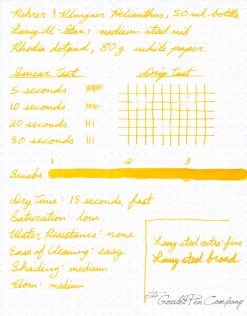 Rohrer & Klingner Helianthus, 50 ml bottle
Lamy Al-Star, medium steel nib
Rhodia dotpad, 80 g white paper
Smear Test Drip Test
5 seconds
10 seconds
20 seconds
30 seconds
1 2 3
Swabs
Dry Time: 15 seconds, fast
Saturation: low
Water Resistance: none
Ease of Cleaning: easy
Shading: medium
Flow: medium
Lamy steel extra-fine
Lamy steel broad
the Goulet Pen Company